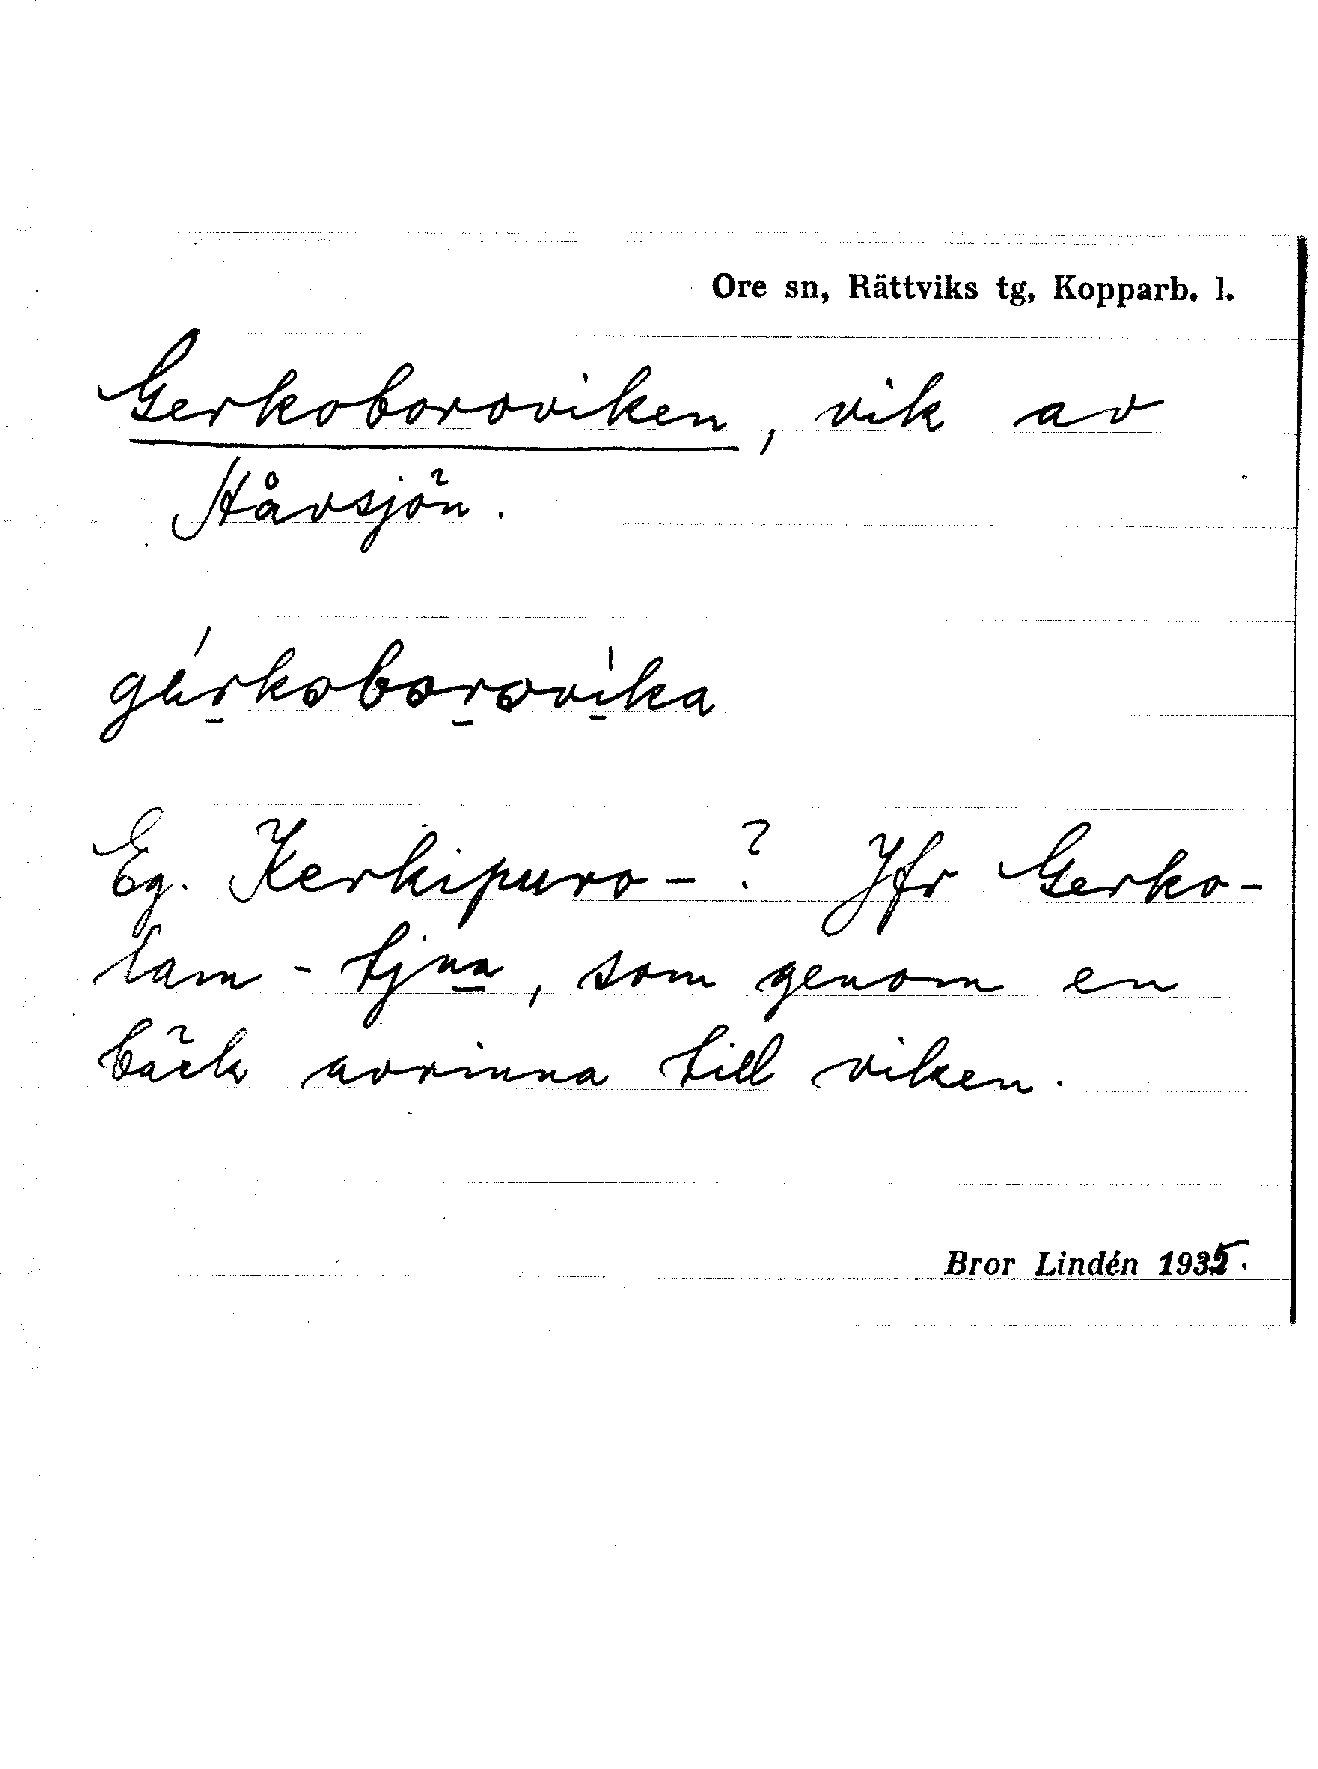 Ore sn, Rättviks tg, Kopparb. l.
Gerkoboroviken, vik av
Håvsjön.
gérkoborovika
Eg. Kerkipuro-? Jfr Gerko-
lam-tjnn, som genom en
bäck avrinna till viken.
Bror Lindén 1935.